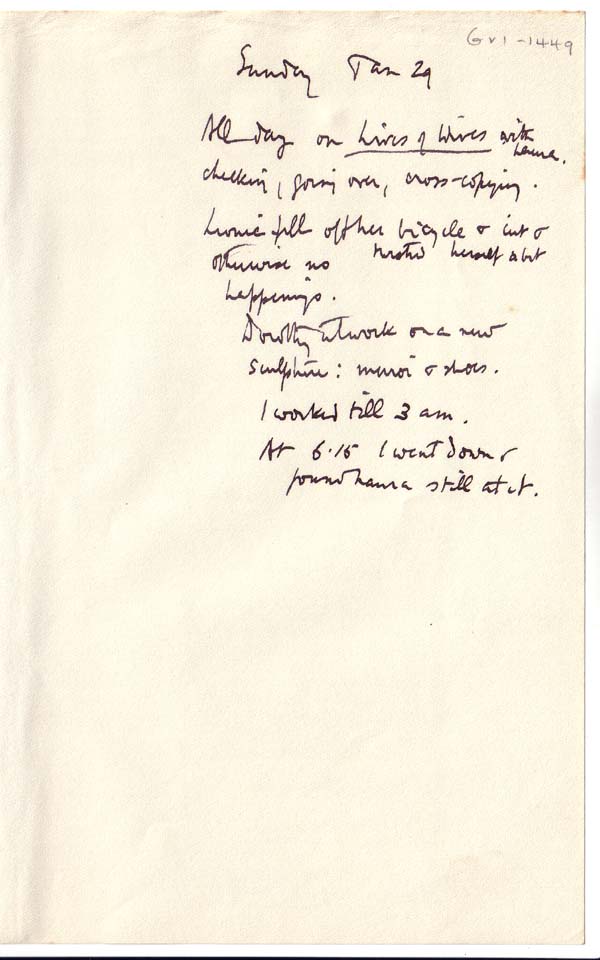 GV1-1449
Sunday Jan 29
All day on Lives of Wives with
Laura.
checking, going over, cross-copying.
Leonie fell off her bicycle & cut &
herself a bit
otherwise no
happenings.
Dorothy at work on a new
sculpture: mirror & shoes.
I worked till 3 am.
At 6.15 I went down &
found Laura still at it.